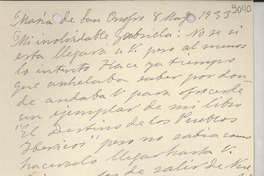 9040
María de San Onofre 8 1933
Mi inolvidable Gabriela: No se si
esta llegará a Ti pero al menos
lo intento. Hace ya tiempo
que anhelaba saber por don-
de andabas para ofrecerte
un ejemplar de mi libro
"El Destino de los Pueblos
Ibericos" pero no sabia como
hacerselo llegar hasta Ti
de salir de